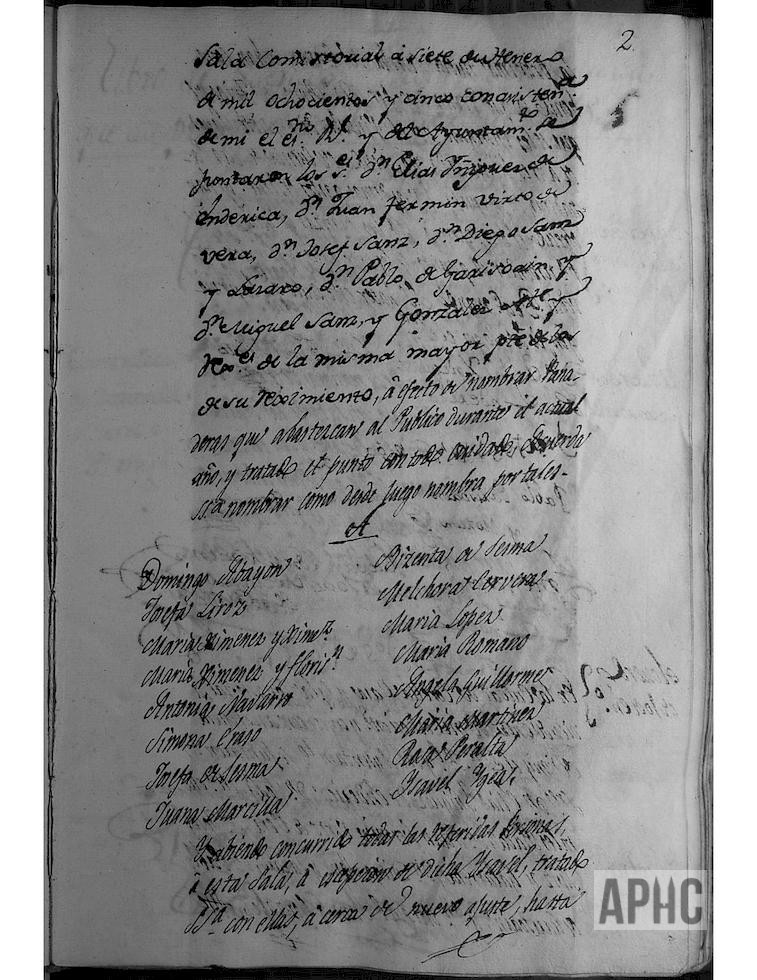 2.
Sala Consistorial à siete de Henero
de mil ochocientos y cinco con asisten.ª
de mi el es.no R.l y del Ayuntam.to se
juntaron los s.es D.n Elias Yñiguez de
enderica, D.n Juan fermin Virto de
vera, D.n Josef Sanz, D.n Diego Sanz
y Lazaro, D.n Pablo de Garisoain y
D.n Miguel Sanz, y Gonzalez y
Rex.es de la misma mayor p.te de los
de su Reximiento, à efecto de nombrar Pana-
deras que abastezcan al Publico durante el actual
año, y tratado el punto con todo cuidado, Acuerda
S.S.ª nombrar como desde luego nombra por tales-
A
Domingo Abayon
Josefa Liroz
Maria Ximenez y Xime.z
Maria Ximenez y
Antonia Navarro
Simona
Josefa de Lesma
Juana Marcilla
Bizenta de Lesma
Melchora Cervera
Maria Lopez
Maria Romano
Angela Guillorme
Maria Martinez
Peralta
Ysavel Yzea.
Y habiendo concurrido todas las referidas Personas,
à esta Sala, à excepcion de dicha Ysavel, tratado
S.S.ª con ellas, à cerca de nuevo ajuste, hasta
APHC